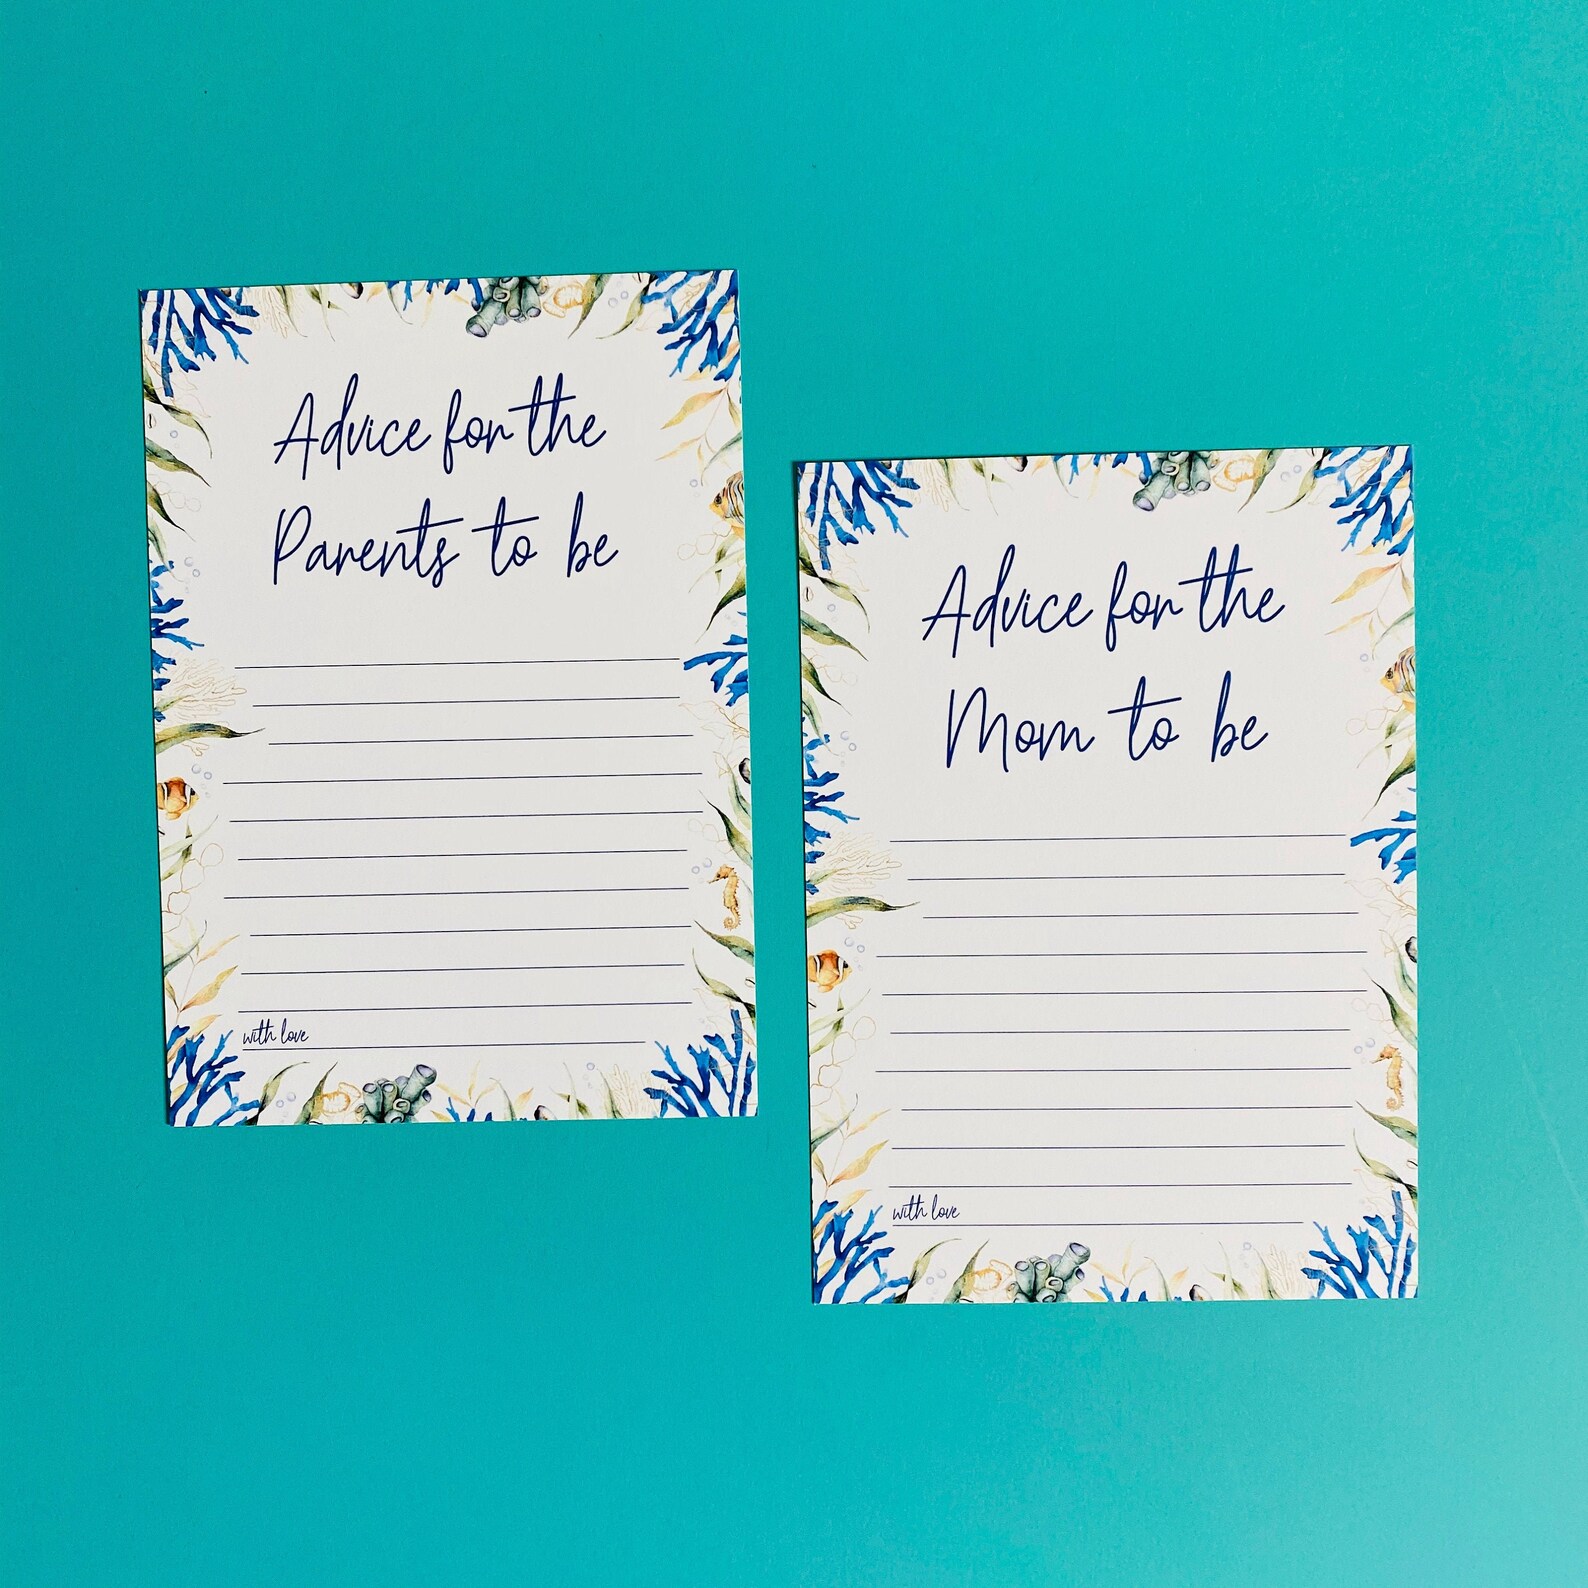 Advice for the
Parents to be
with love
Advice for the
Mom to be
with love